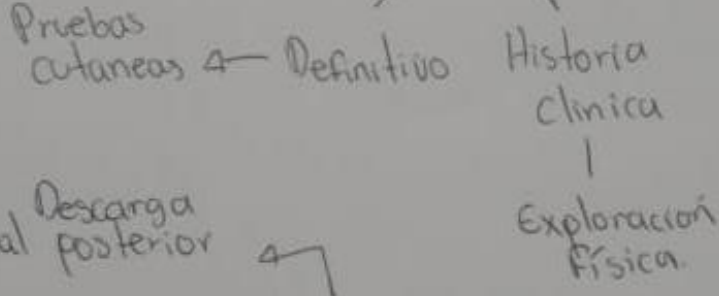 Pruebas
cutaneas ← Definitivo
Historia
Clinica
Exploración
física.
Descarga
al posterior